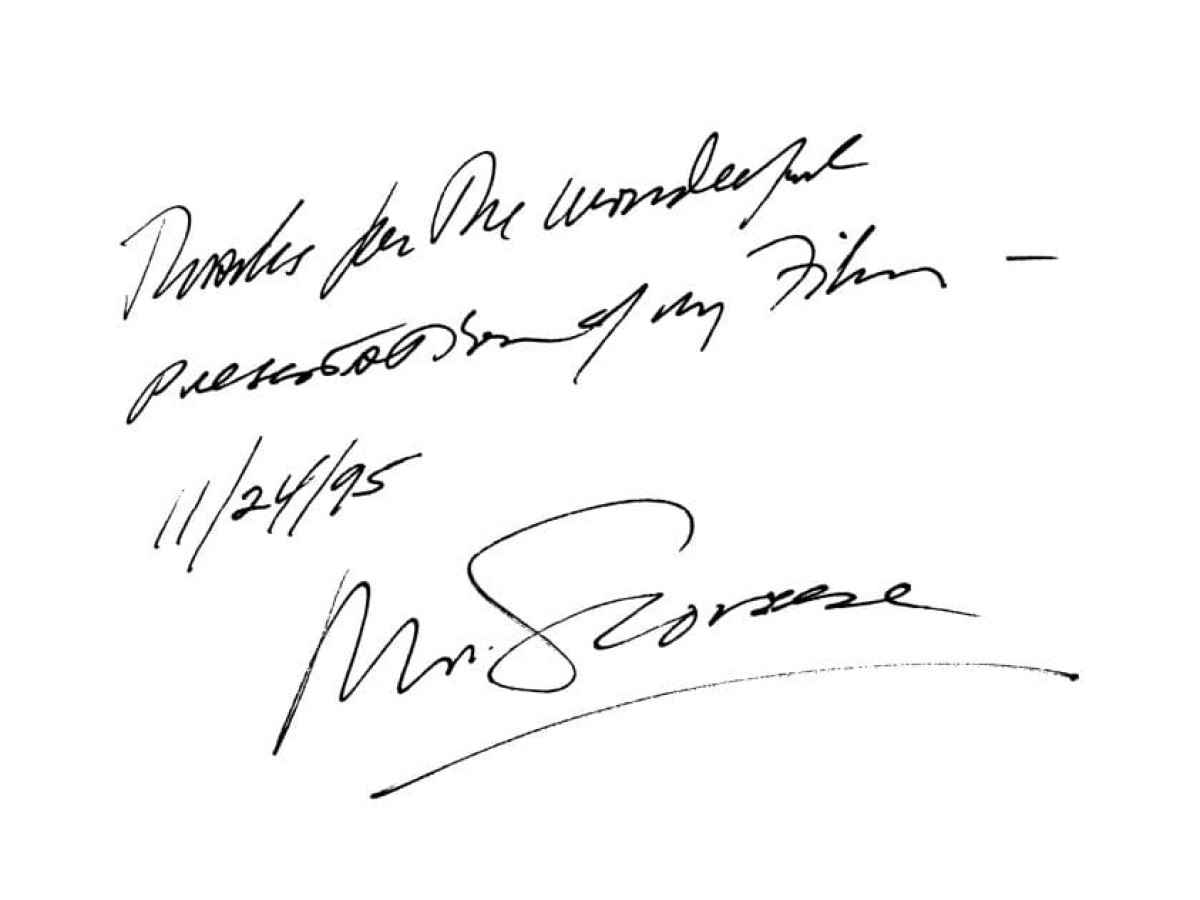 Thanks for the wonderful
presentation of my Film —
11/24/95
Mr. Scorsese